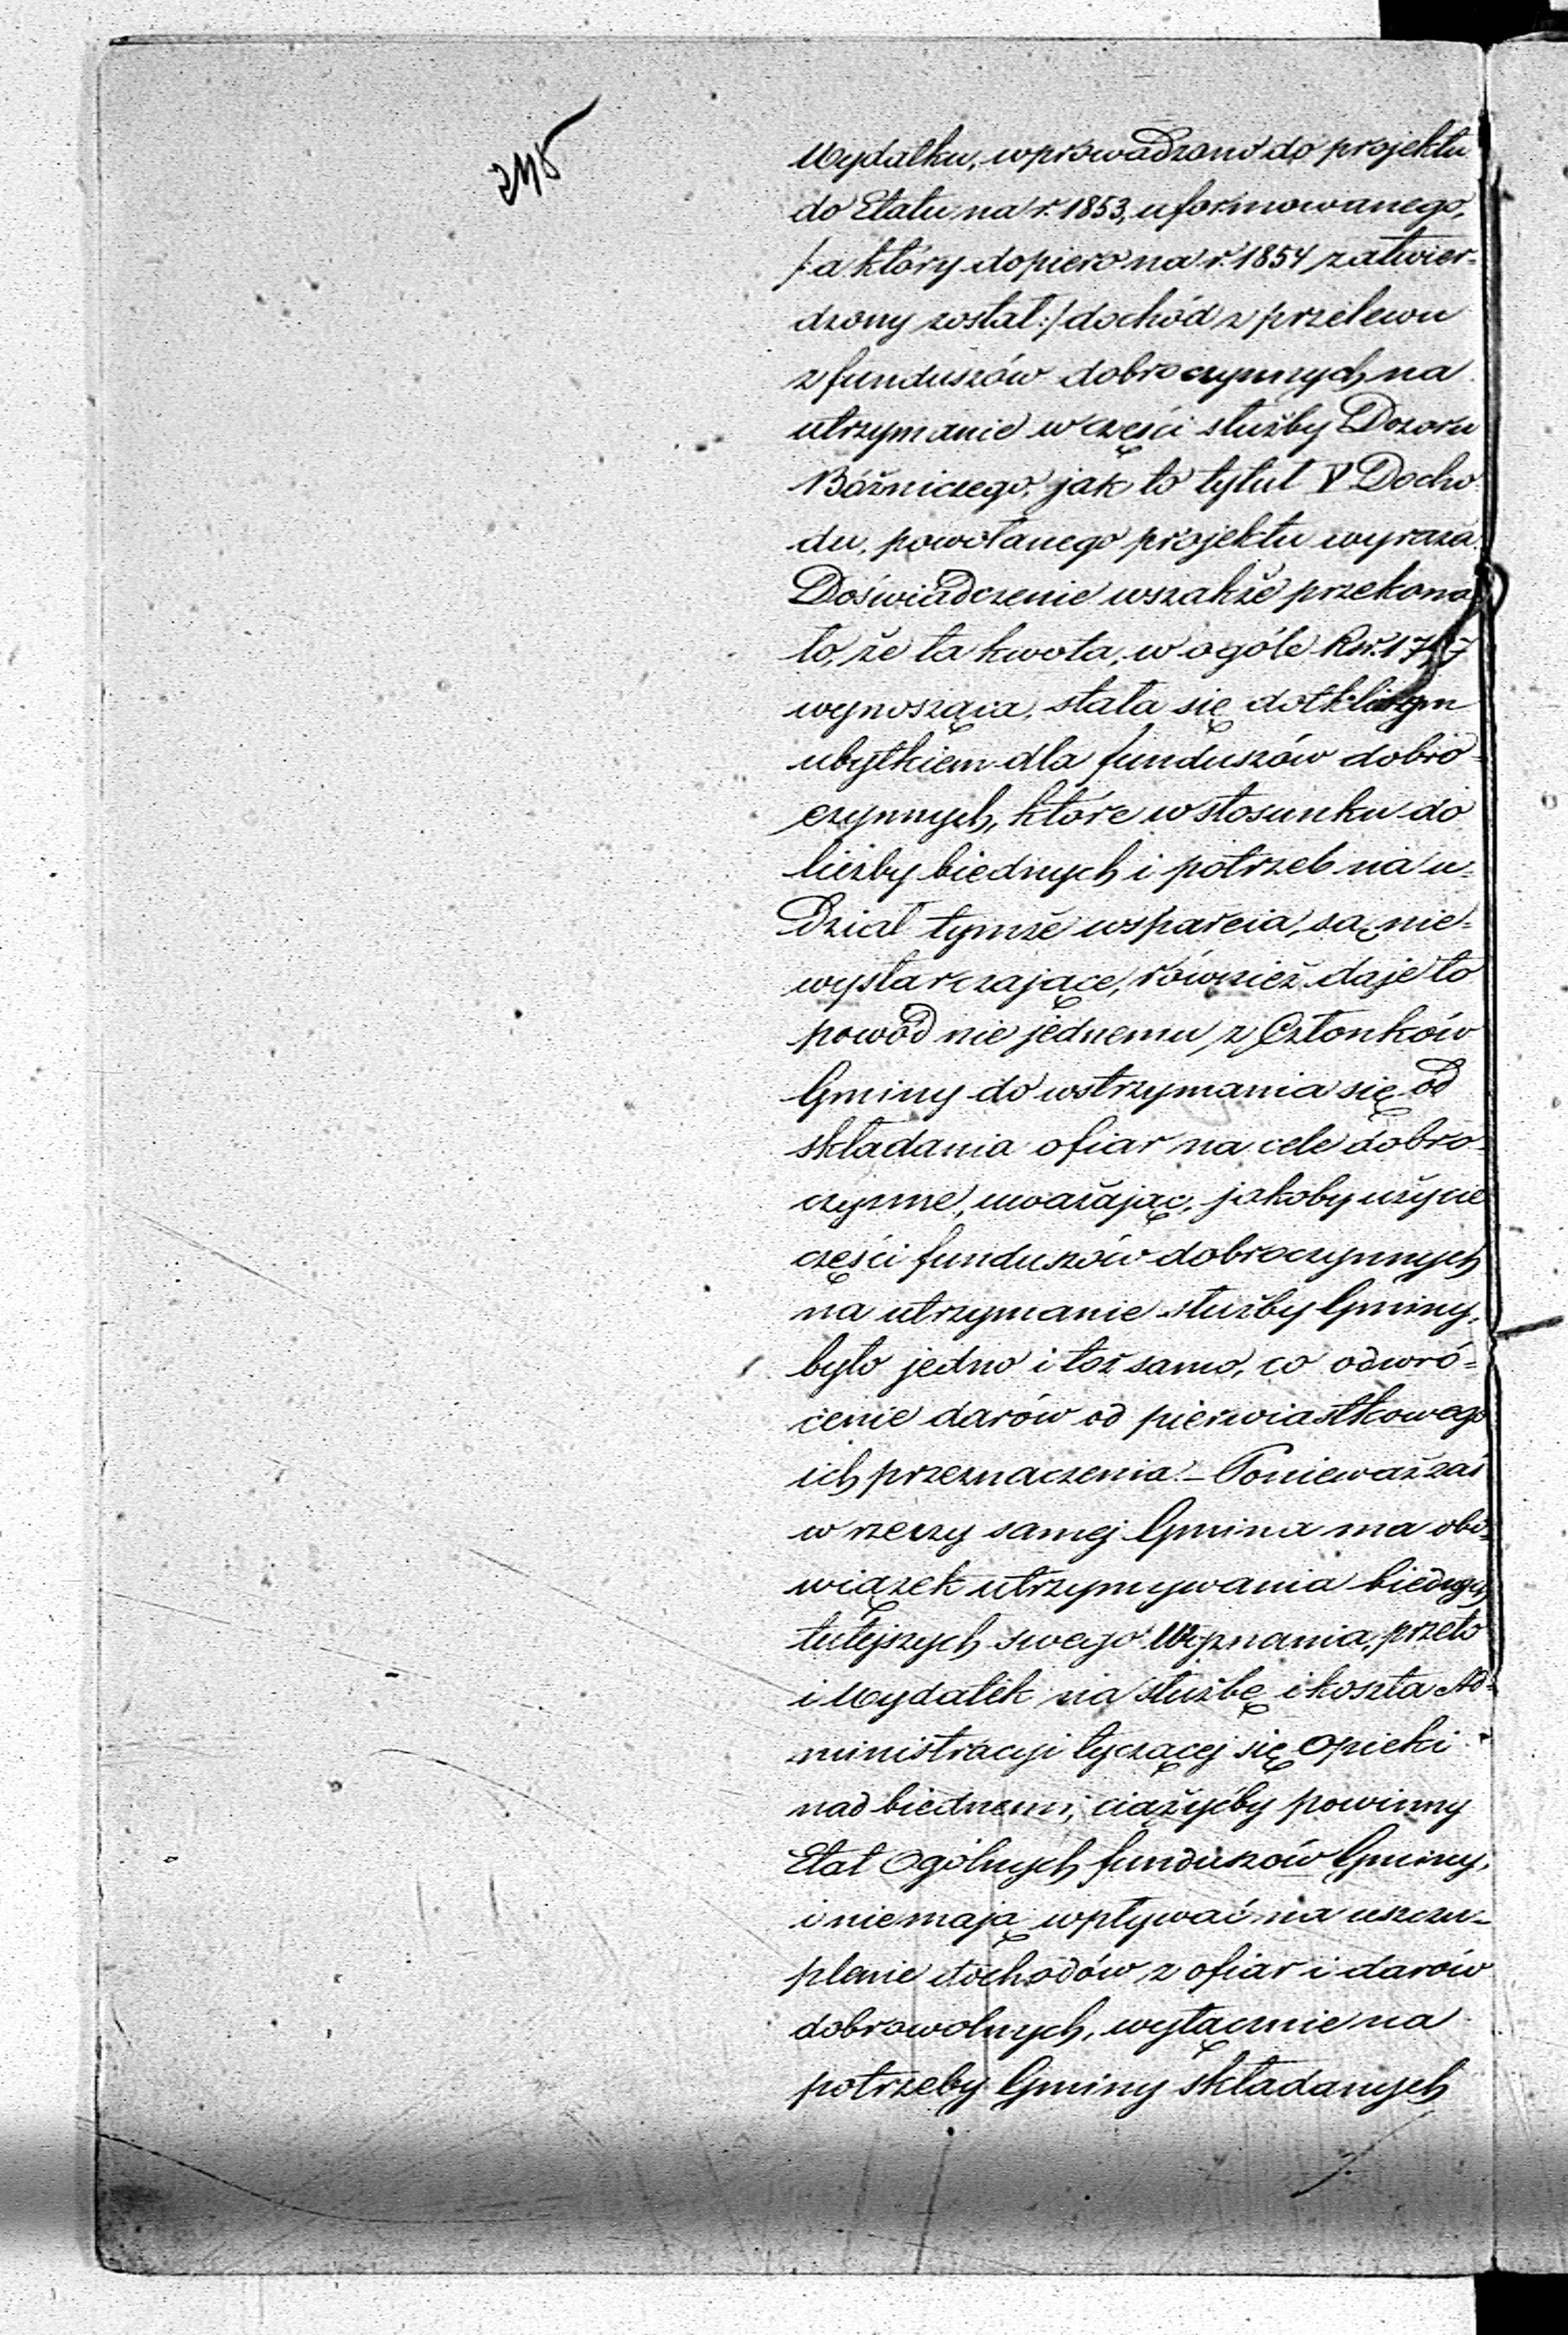 245
Wydatku, wprowadzono do projektu
do Etatu na r. 1853, uformowanego,
/:a który dopiero na r. 1854 zatwier-
dzony został:/ dochód z przelewu
z funduszów dobroczynnych na
utrzymanie w części służby Dozoru
Bóżniczego, jak to tytuł V Docho-
du, powołanego projektu wyraża.
Doświadczenie wszakże przekona-
ło, że ta kwota, w ogóle Rsr.
wynosząca, stała się dotkliwym
ubytkiem dla funduszów dobro-
czynnych, które w stosunku do
liczby biednych i potrzeb na u-
dział tymże wsparcia, są nie-
wystarczające, również daje to
powód nie jednemu z Członków
Gminy do wstrzymania się od
składania ofiar na cele dobro-
czynne, uważając, jakoby użycie
części funduszów dobroczynnych
na utrzymanie służby Gminy,
było jedno i toż samo, co odwró-
cenie darów od pierwiastkowego
ich przeznaczenia. – Ponieważ zaś
w rzeczy samej Gmina ma obo-
wiązek utrzymywania biednych
tutejszych swego Wyznania, przeto
i Wydatek na służbę i koszta Ad-
ministracyi tyczącej się opieki
nad biednemi, ciążyćby powinny
Etat Ogólnych funduszów Gminy,
i nie mają wpływać na uszczu-
plenie dochodów z ofiar i darów
dobrowolnych, wyłącznie na
potrzeby Gminy składanych